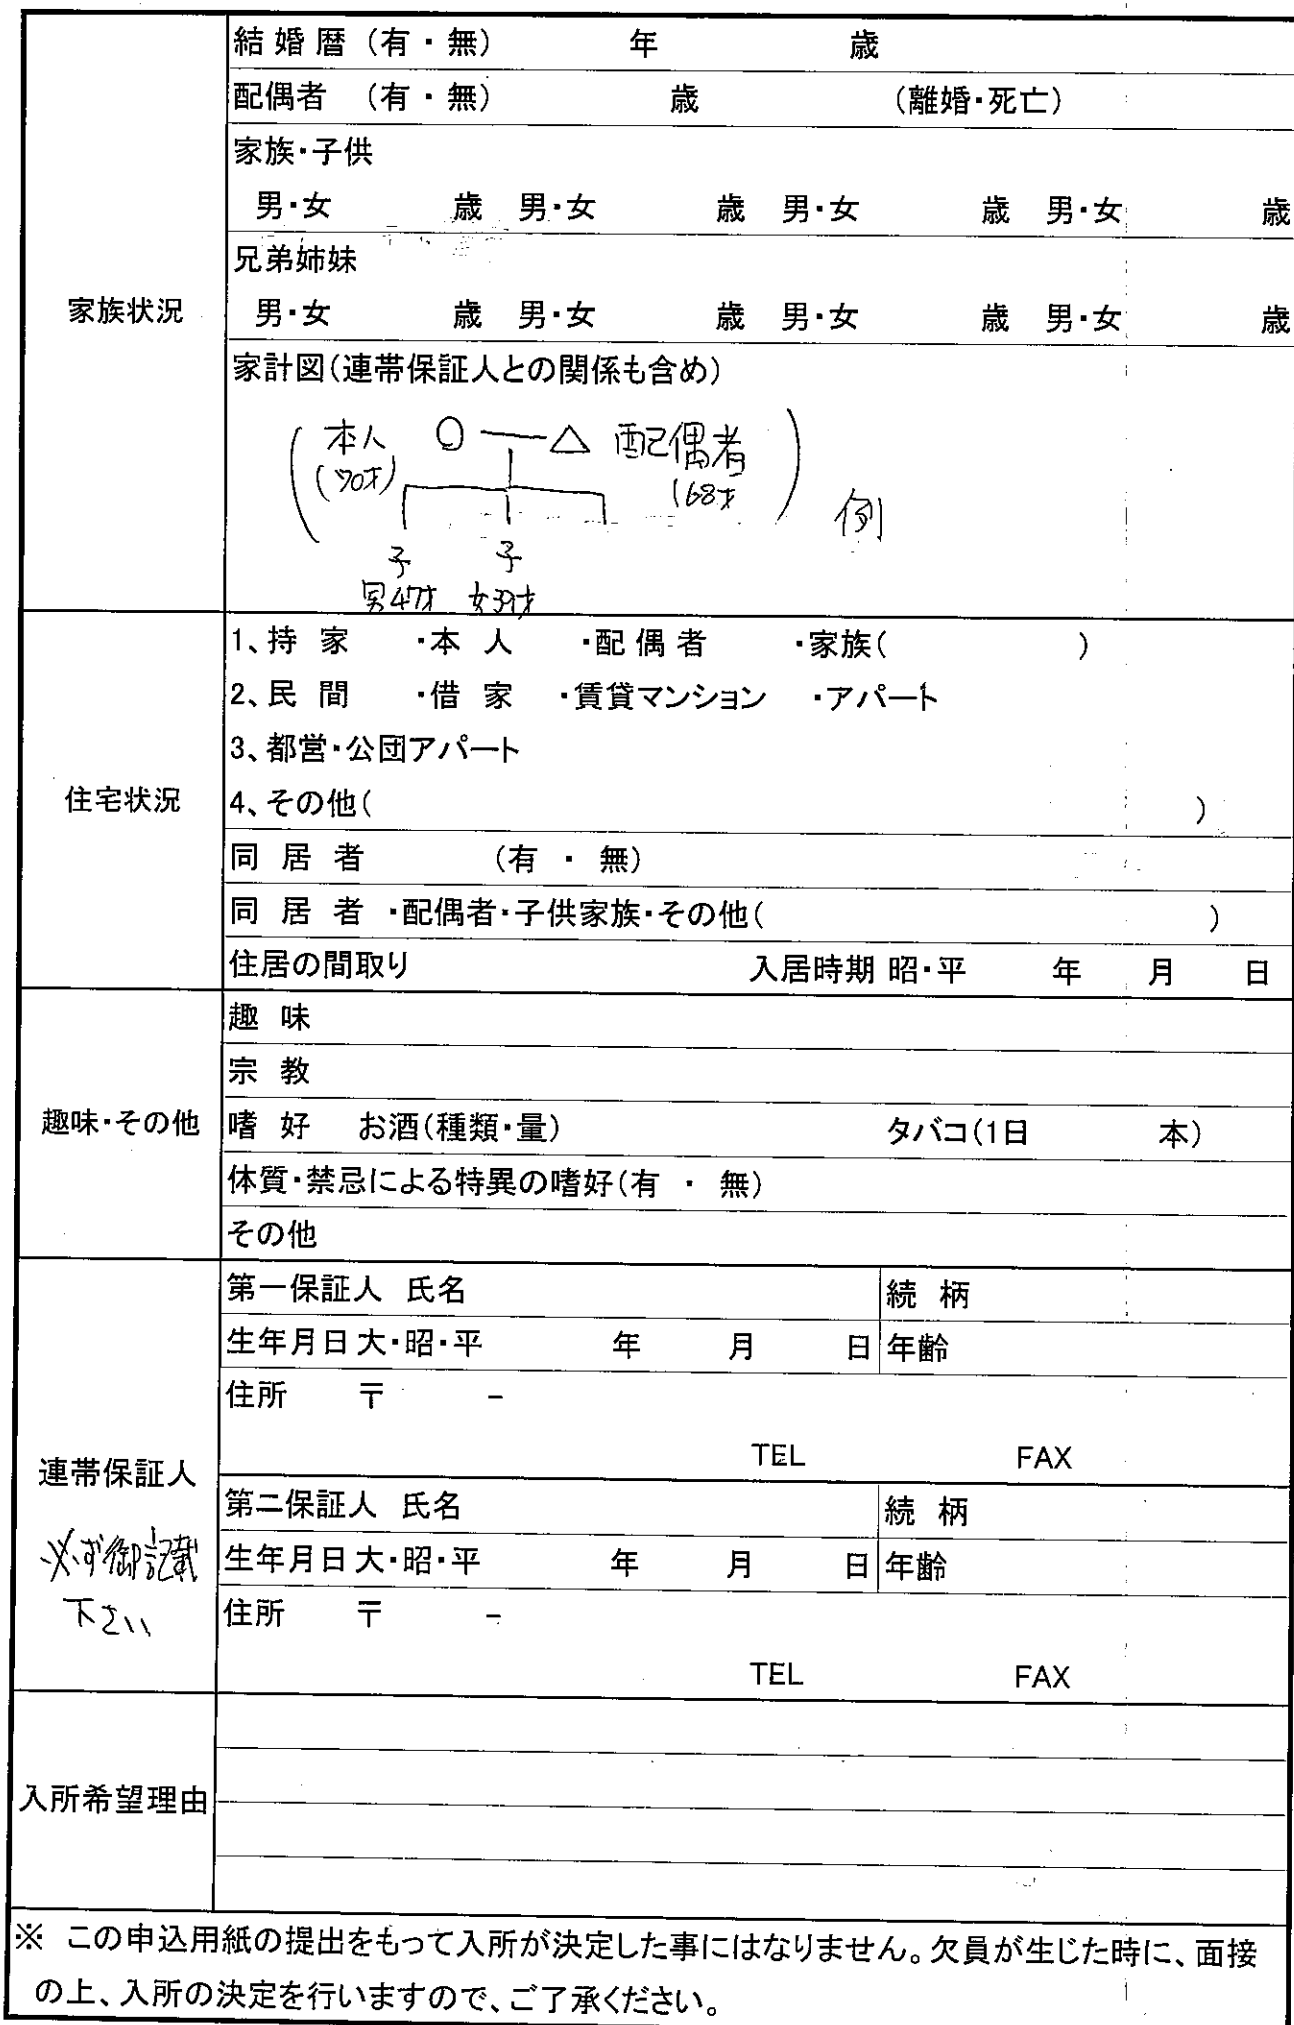 結婚暦（有・無）　年　歳
配偶者　（有・無）　歳　（離婚・死亡）
家族・子供
男・女　歳　男・女　歳　男・女　歳　男・女　歳
兄弟姉妹
家族状況
男・女　歳　男・女　歳　男・女　歳　男・女　歳
家計図（連帯保証人との関係も含め）
本人　○―△　配偶者
（70才）　（68才
例
子　子
男47才　女39才
1、持家　・本人　・配偶者　・家族（　）
2、民間　・借家　・賃貸マンション　・アパート
3、都営・公団アパート
住宅状況
4、その他（　）
同居者　（有・無）
同居者　・配偶者・子供家族・その他（　）
住居の間取り　入居時期 昭・平　年　月　日
趣味
宗教
趣味・その他
嗜好　お酒（種類・量）　タバコ（1日　本）
体質・禁忌による特異の嗜好（有・無）
その他
第一保証人　氏名　続柄
生年月日 大・昭・平　年　月　日　年齢
住所　〒　－
TEL　FAX
連帯保証人
必ず御記載
下さい
第二保証人　氏名　続柄
生年月日 大・昭・平　年　月　日　年齢
住所　〒　－
TEL　FAX
入所希望理由
※　この申込用紙の提出をもって入所が決定した事にはなりません。欠員が生じた時に、面接
の上、入所の決定を行いますので、ご了承ください。